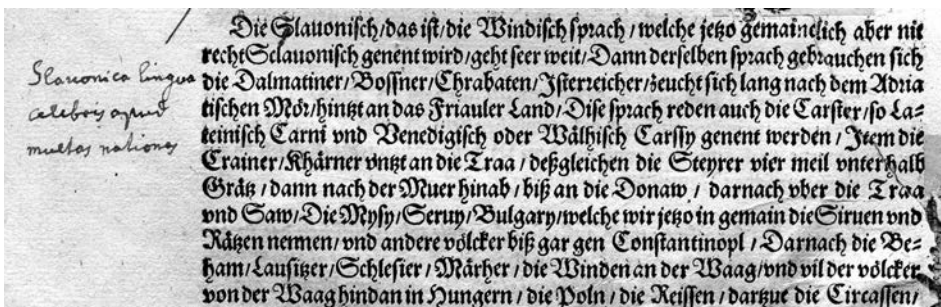 Die Slauonisch/das ist/die Windisch sprach / welche jetzo gemainclich aber nit
recht Sclauonisch genent wird/geht seer weit/Dann derselben sprach gebrauchen sich
die Dalmatiner/Bossner/Chrabaten/Isterreicher/zeucht sich lang nach dem Adria
tischen Mör/hintzt an das Friauler Land/Dise sprach reden auch die Carster/so La=
teinisch Carni vnd Venedigisch oder Wälhisch Carssy genent werden / Item die
Crainer/Khärner vntzt an die Traa / deßgleichen die Steyrer vier meil vnterhalb
Grätz / dann nach der Muer hinab / biß an die Donaw / darnach vber die Traa
vnd Saw/Die Mysy/Seruy/Bulgary/welche wir jetzo in gemain die Siruen vnd
Rätzen nennen/vnd andere völcker biß gar gen Constantinopl / Darnach die Be=
ham/Lausitzer/Schlesier/Märher / die Winden an der Waag/vnd vil der völcker
von der Waag hindan in Hungern / die Poln / die Reissen / dartzue die Circassen/
Slauonica lingua
celebris apud
multas nationes